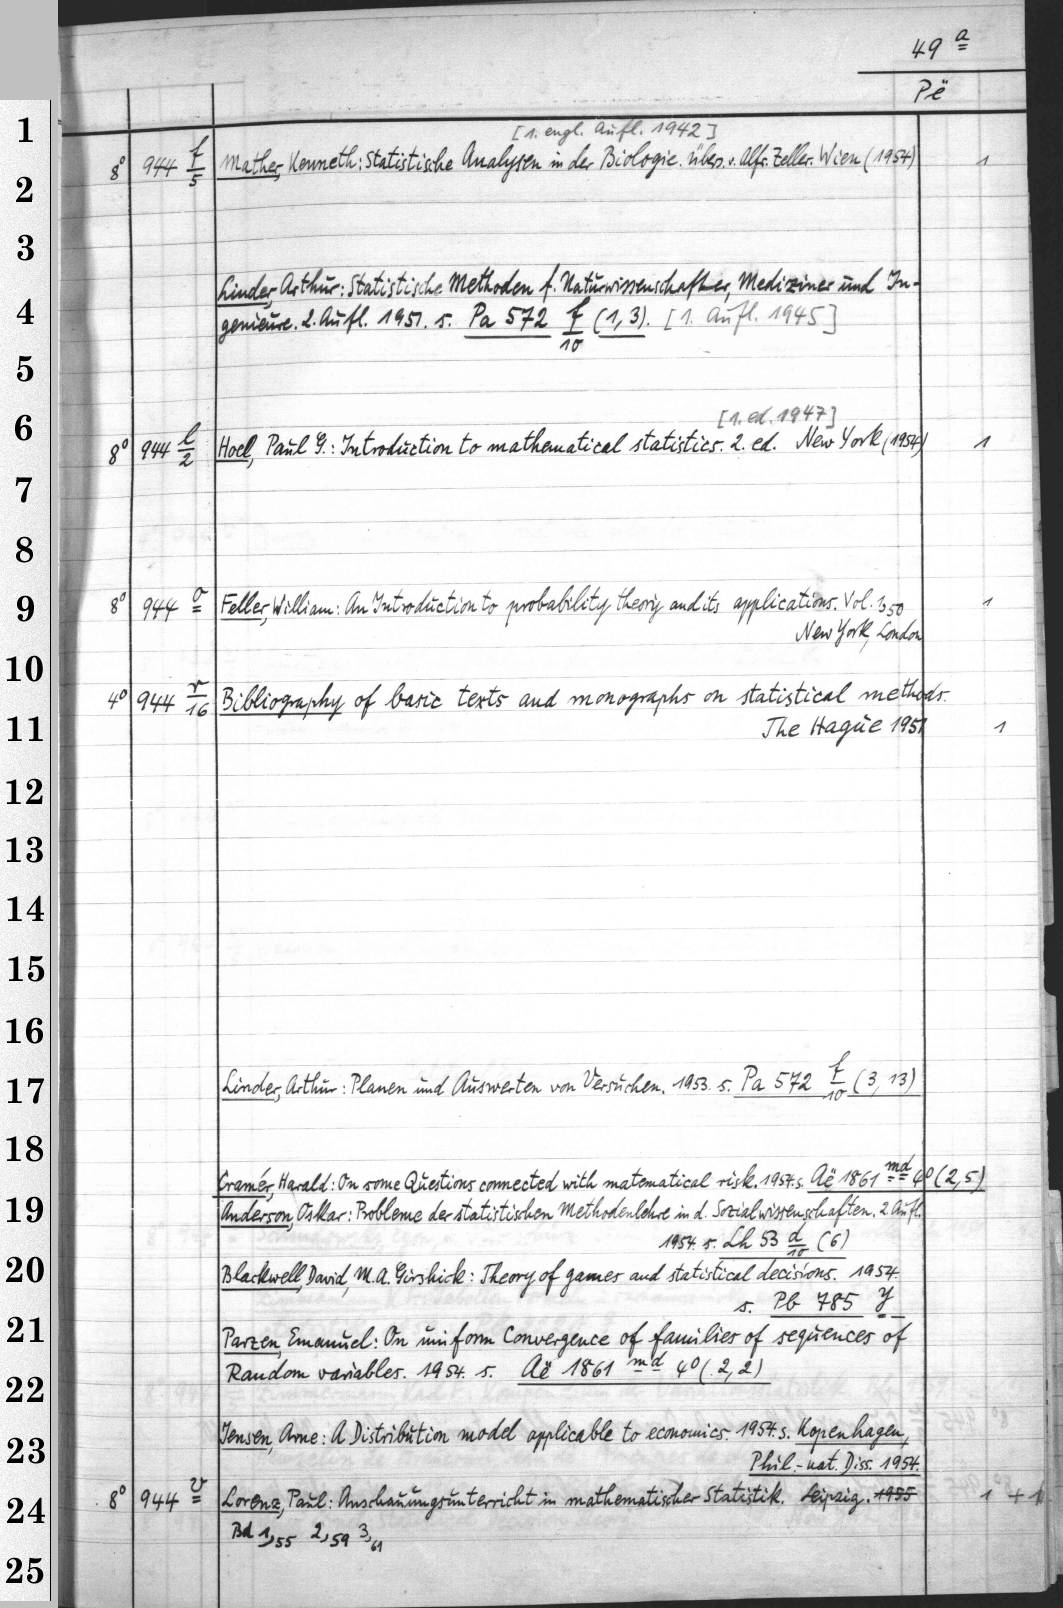 49 a
Pë
1
[1. engl. Aufl. 1942]
8° 944 f/5 Mather, Kenneth: Statistische Analysen in der Biologie. Übers. v. Alfr. Zeller. Wien (1954) 1
2
3
Linder, Arthur: Statistische Methoden f. Naturwissenschafter, Mediziner und In-
4
genieure. 2. Aufl. 1951. s. Pa 572 f/10 (1,3). [1. Aufl. 1945]
5
6
[1. ed. 1947]
8° 944 l/2 Hoel, Paul G.: Introduction to mathematical statistics. 2. ed. New York (1954) 1
7
8
9
8° 944 o Feller, William: An Introduction to probability theory and its applications. Vol. 1,50 1
New York, London
10
4° 944 r/16 Bibliography of basic texts and monographs on statistical methods.
11
The Hague 1951 1
12
13
14
15
16
17
Linder, Arthur: Planen und Auswerten von Versuchen. 1953. s. Pa 572 f/10 (3,13)
18
Cramér, Harald: On some Questions connected with matematical risk. 1954. s. Aë 1861 md 4° (2,5)
19
Anderson, Oskar: Probleme der statistischen Methodenlehre in d. Sozialwissenschaften. 2. Aufl.
1954. s. Lh 53 d/10 (6)
20
Blackwell, David, M.A. Girshick: Theory of games and statistical decisions. 1954.
s. Pb 785 y
21
Parzen, Emanuel: On uniform Convergence of families of sequences of
Random variables. 1954. s. Aë 1861 md 4° (2,2)
22
Jensen, Arne: A Distribution model applicable to economics. 1954. s. Kopenhagen,
23
Phil.-nat. Diss. 1954.
24
8° 944 v Lorenz, Paul: Anschauungsunterricht in mathematischer Statistik. Leipzig. 1955 1 + 1
Bd 1,55 2,59 3,61
25